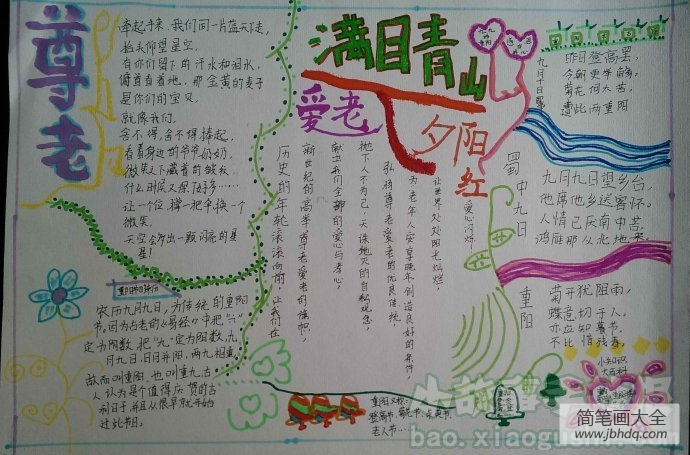 尊老
牵起手来,我们同一片蓝天下走,
抬头仰望星空,
有你们留下的汗水和泪水,
俯首看着地,那金黄的麦子
是你们的宝贝,
就像我们,
舍不得,舍不得捧起,
看着身边的爷爷奶奶,
微笑之下藏着的皱纹,
让一个位,撑一把伞,换一个
微笑,
天空会多出一颗闪亮的星
星!
农历九月九日,为传统的重阳
节,因为古老的《易经》中把"六"
定为阴数,把"九"定为阳数,九
月九日,日月并阳,两九相重,
故而叫重阳,也叫重九,古
人认为是个值得庆贺的吉
利日子,并且从很早就开始
过此节日。
满目青山
爱老
夕阳红
爱心闪烁,
让世界处处阳光灿烂,
为老年人安享晚年创造良好的条件
弘扬尊老爱老的优良传统,
抛下人不为己,天诛地灭的自私观念,
献出我们全部的爱心与孝心,
新世纪的高举尊老爱老的旗帜,
历史的年轮滚滚向前,让我们在
九月十日即事
昨日登高罢,
今朝更举觞,
菊花何太苦,
遭此两重阳
蜀中九日
九月九日望乡台,
他席他乡送客杯。
人情已厌南中苦,
鸿雁那从北地来。
重阳
菊开犹阻雨,
蝶意切于人,
亦应知暮节,
不比惜残春,
小知识
大百科
重阳又称:
登高节、菊花节、茱萸节、
老人节……
bao.xiaogushi.com
简笔画大全
www.jbhdq.com